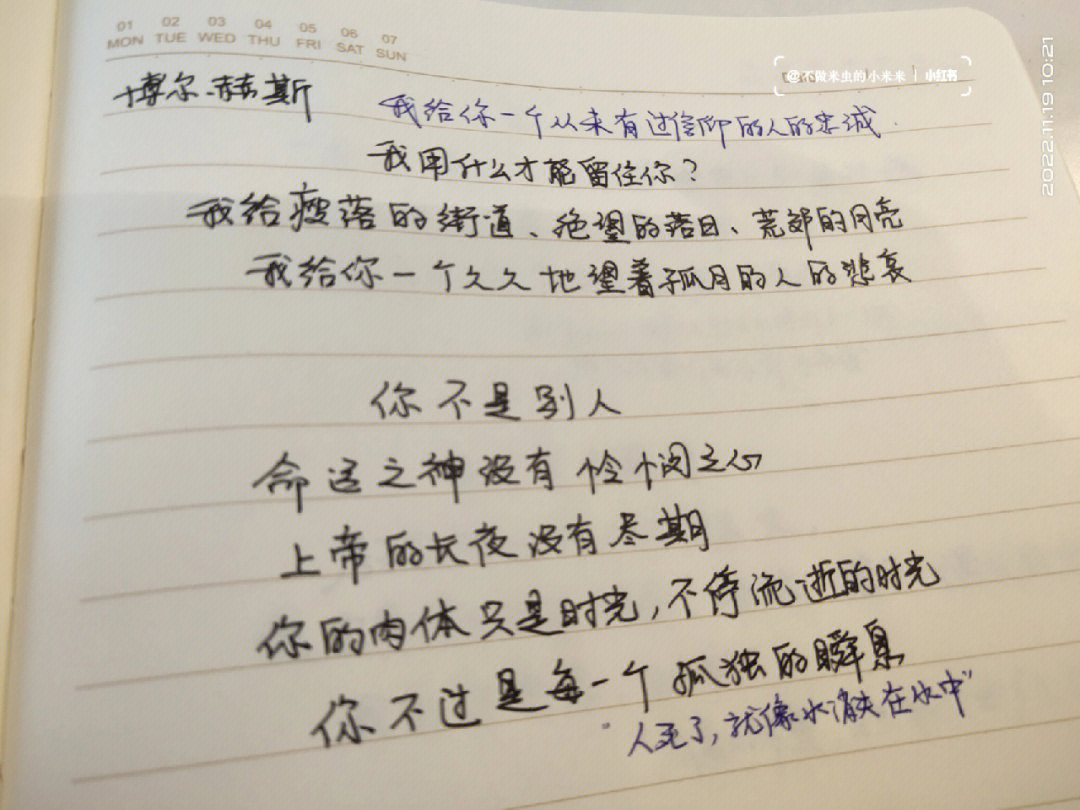 01 02 03 04 05 06 07
MON TUE WED THU FRI SAT SUN
@不做米虫的小米来 | 小红书
2022.11.19 10:21
博尔.赫斯
我给你一个从来有过信仰的人的忠诚.
我用什么才能留住你？
我给瘦落的街道、绝望的落日、荒郊的月亮
我给你一个久久地望着孤月的人的悲哀
你不是别人
命运之神没有怜悯之心
上帝的长夜没有尽期
你的肉体只是时光，不停流逝的时光
你不过是每一个孤独的瞬息
"人死了，就像水消失在水中"